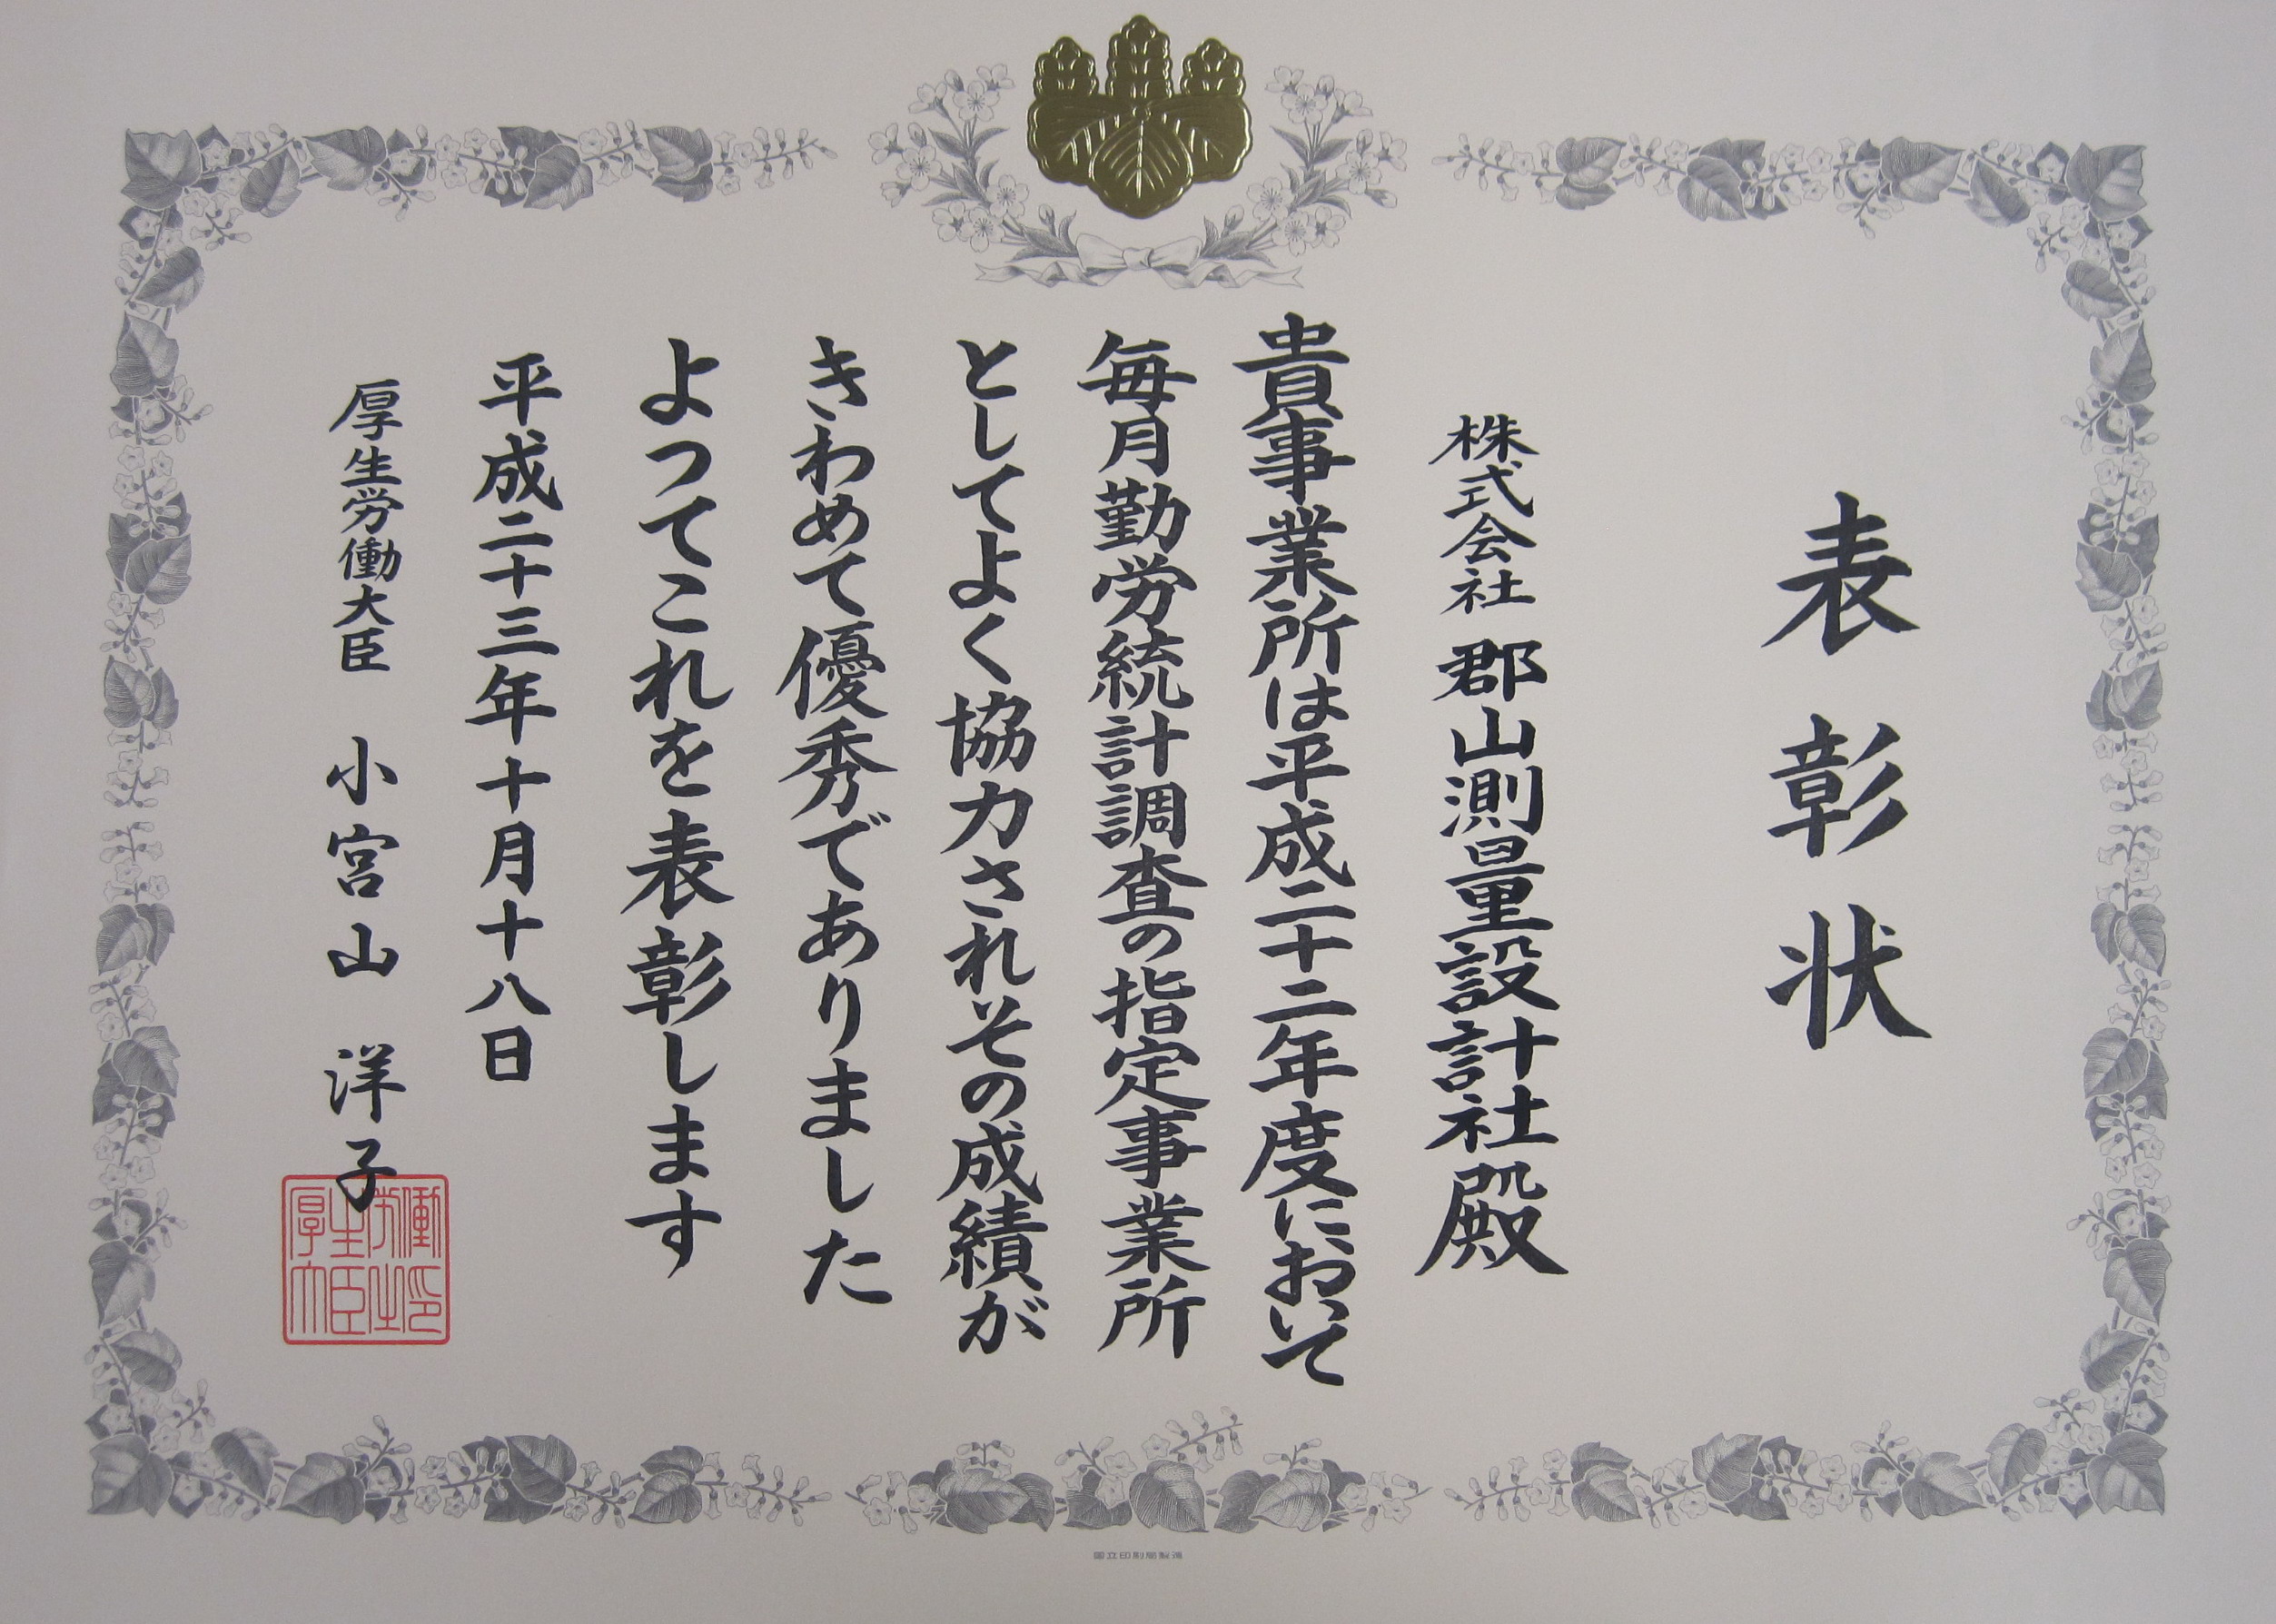 表彰状
株式会社 郡山測量設計社殿
貴事業所は平成二十二年度において
毎月勤労統計調査の指定事業所
としてよく協力されその成績が
きわめて優秀でありました
よってこれを表彰します
平成二十三年十月十八日
厚生労働大臣 小宮山 洋子
働労生厚
印之臣大
国立印刷局製造